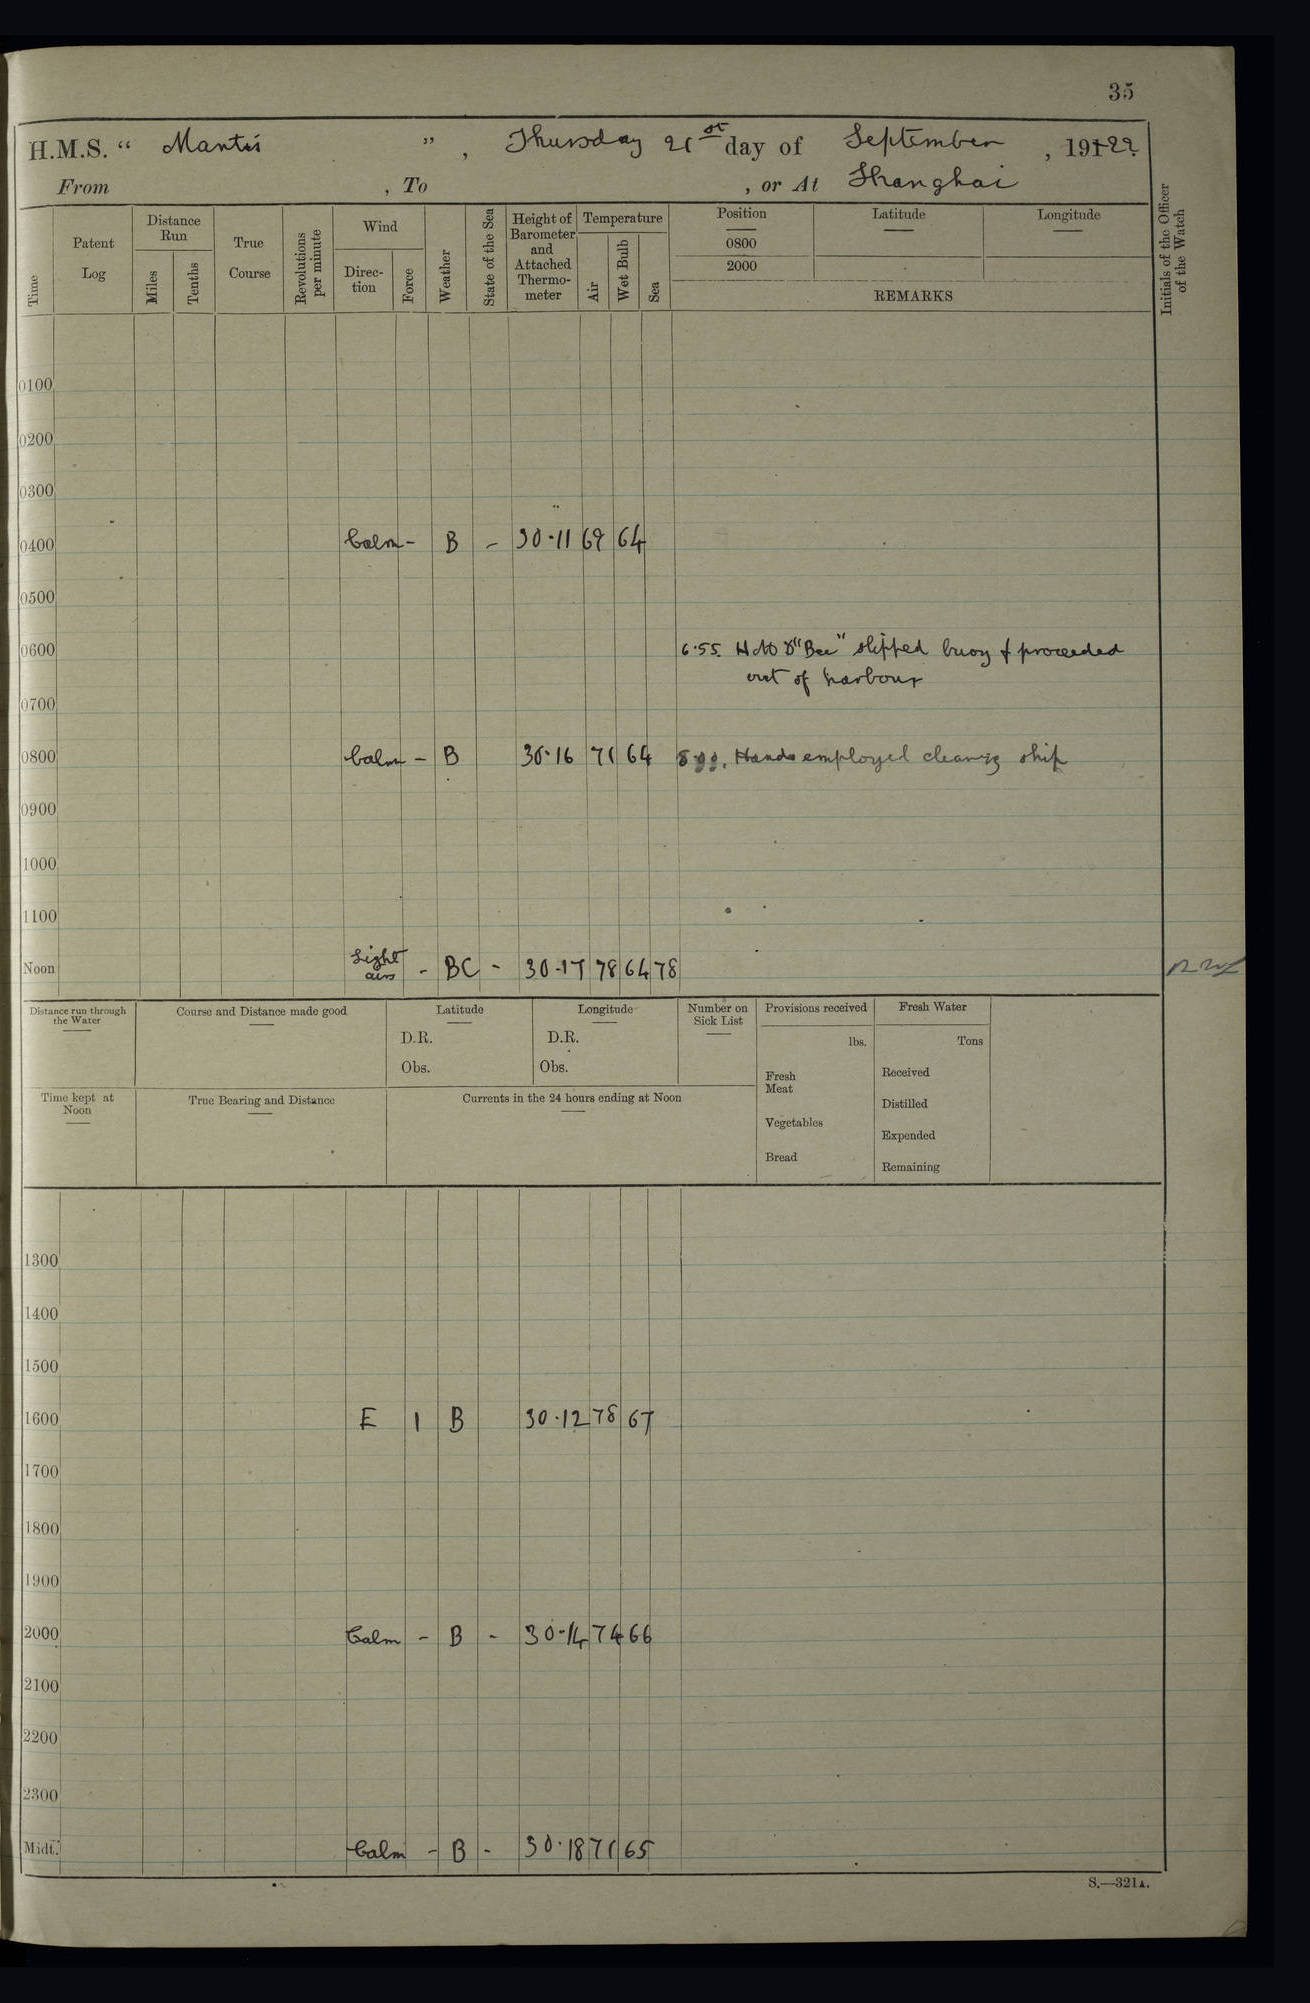 35
H.M.S. “ Mantis ” , Thursday 21st day of September , 191-22.
From , To , or At Shanghai
Time
Patent Log
Distance Run
Miles
Tenths
True Course
Revolutions per minute
Wind
Direc-tion
Force
Weather
State of the Sea
Height of Barometer and Attached Thermo-meter
Temperature
Air
Wet Bulb
Sea
Position
0800
2000
Latitude
Longitude
REMARKS
Initials of the Officer of the Watch
0100
0200
0300
0400 Calm - B - 30.11 69 64
0500
0600 6.55. HMS "Bee" slipped buoy & proceeded
out of harbour
0700
0800 Calm - B 30.16 71 64 Hands employed cleaning ship
0900
1000
1100
Noon Light airs - BC - 30.17 78 64 78
Distance run through the Water
Course and Distance made good
Latitude
D.R.
Obs.
Longitude
D.R.
Obs.
Number on Sick List
Provisions received
lbs.
Fresh Meat
Vegetables
Bread
Fresh Water
Tons
Received
Distilled
Expended
Remaining
Time kept at Noon
True Bearing and Distance
Currents in the 24 hours ending at Noon
1300
1400
1500
1600 E 1 B 30.12 78 67
1700
1800
1900
2000 Calm - B - 30.14 74 66
2100
2200
2300
Midt. Calm - B - 30.18 71 65
S.—321A.